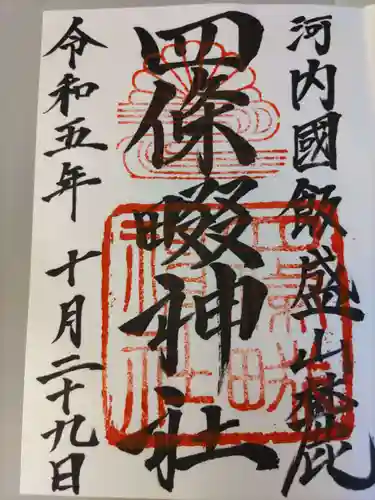 河内國飯盛山麓
四條畷神社
令和五年 十月二十九日